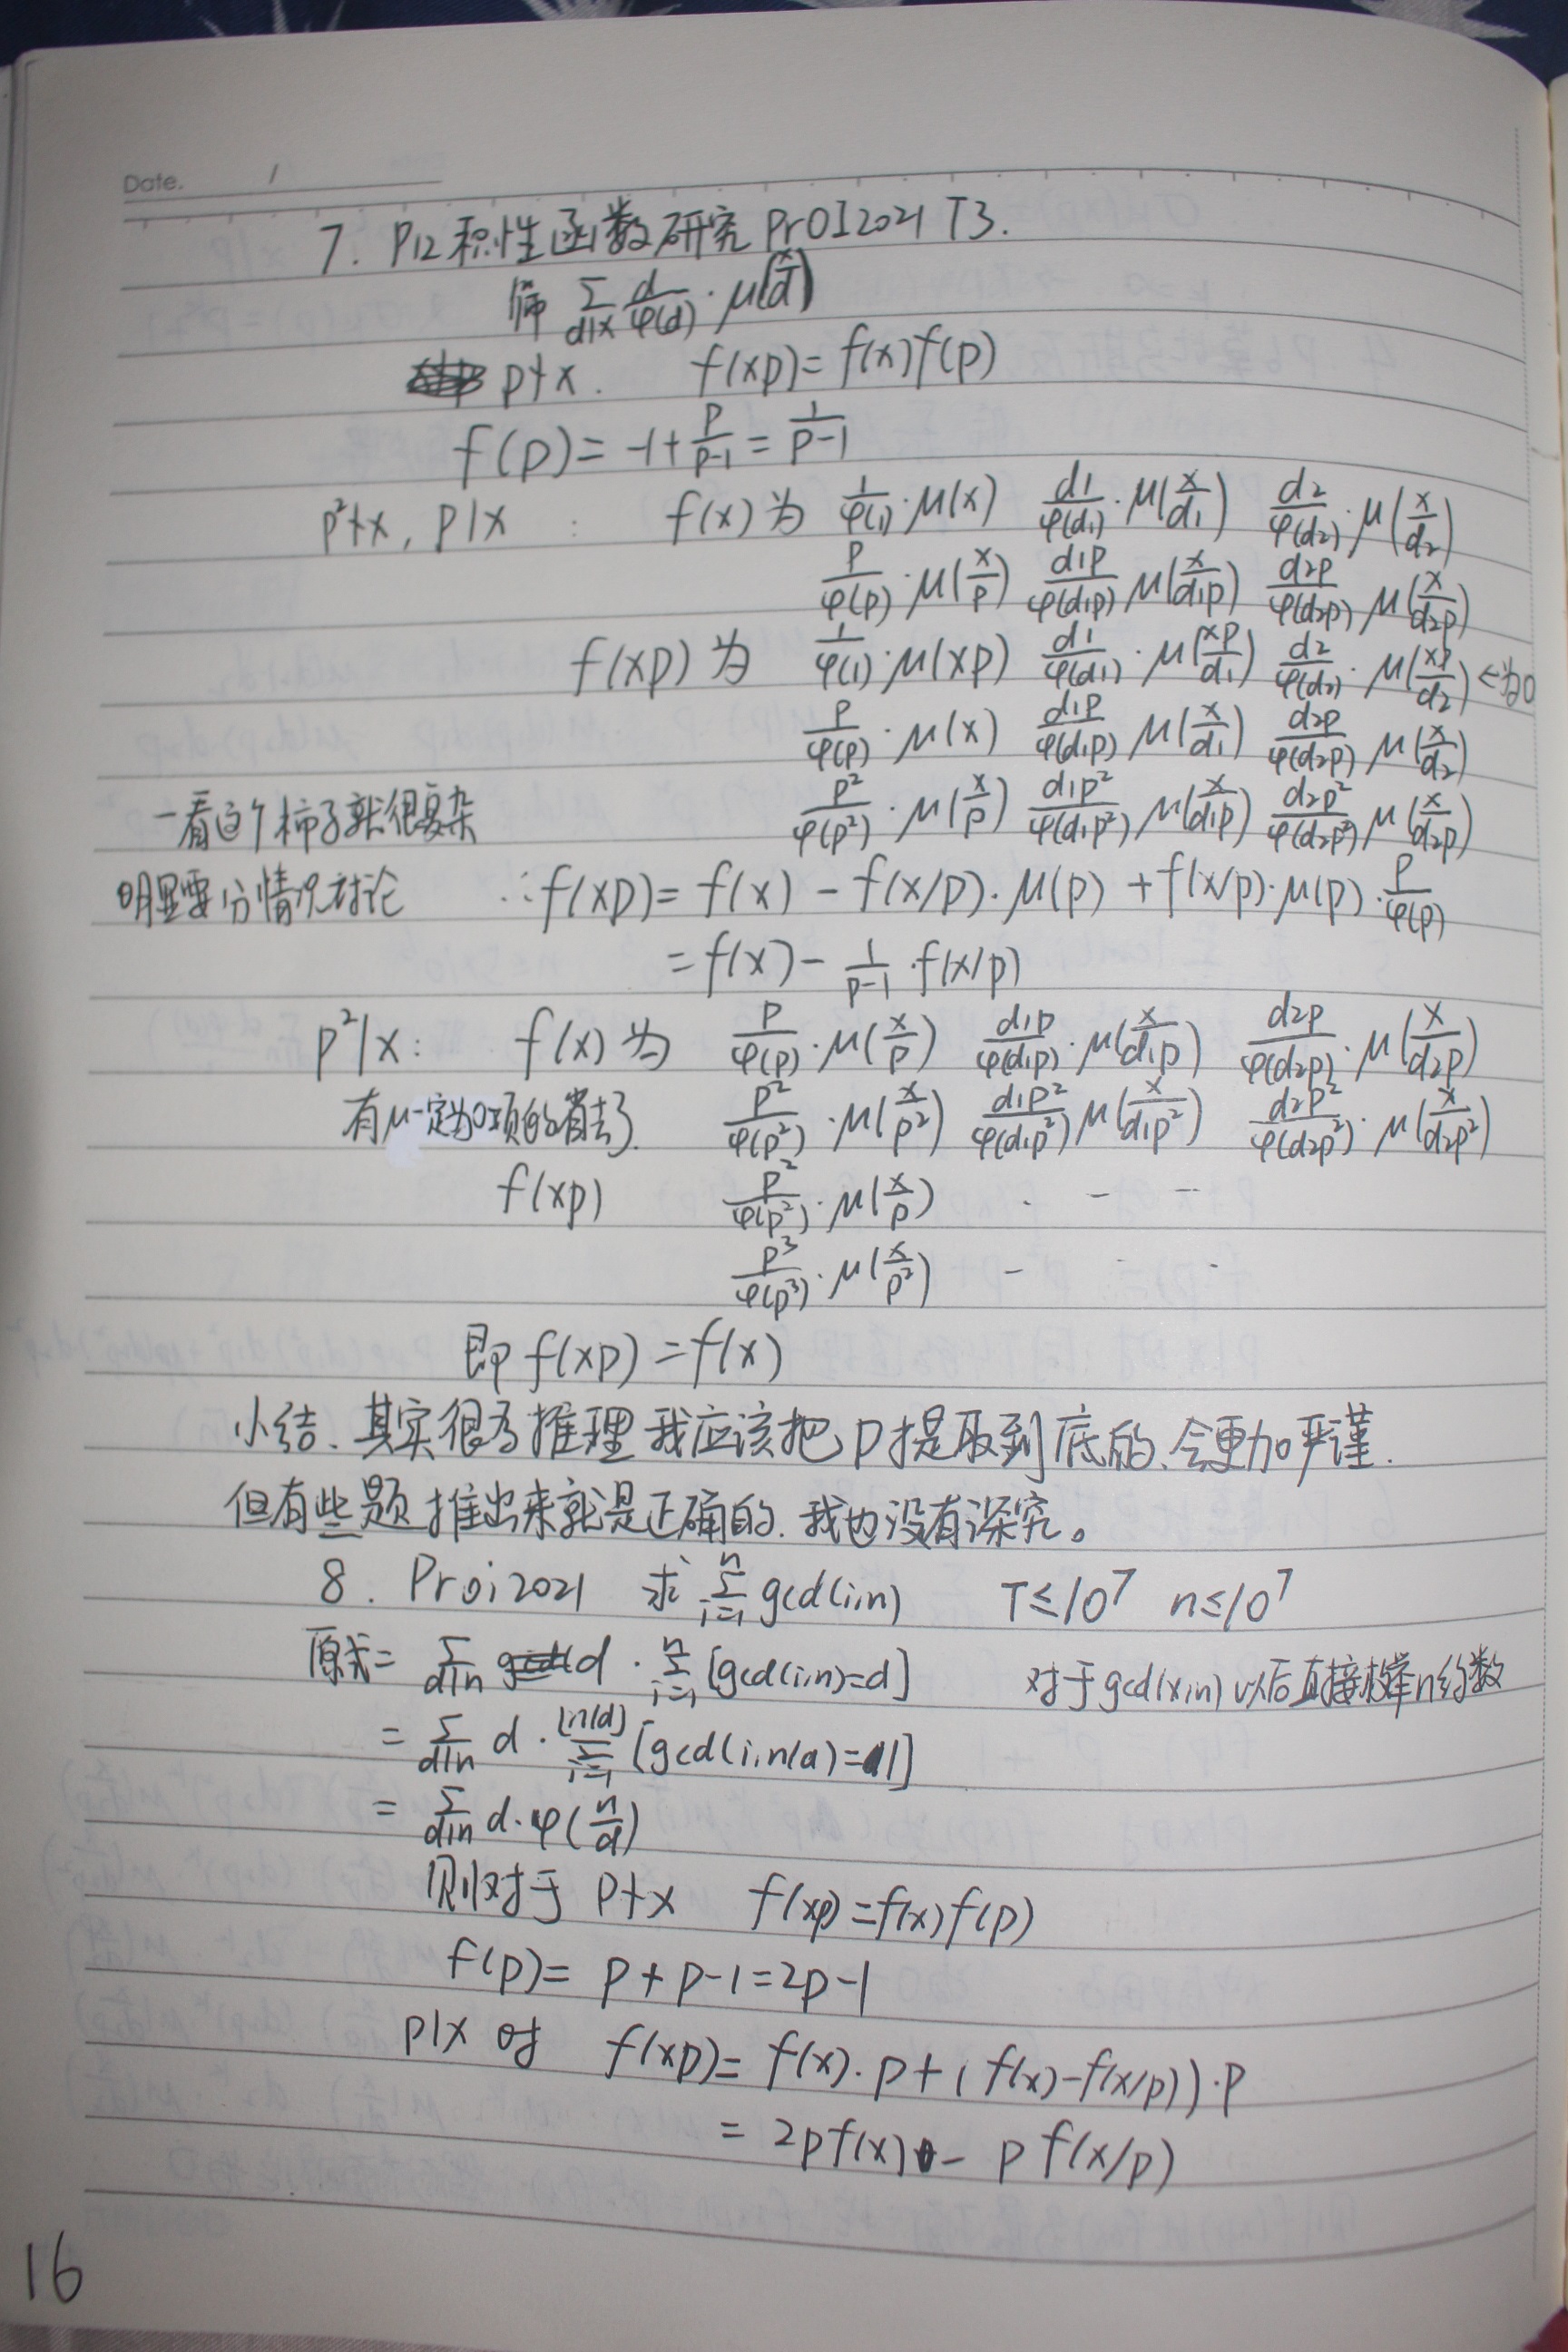 Date. /
7. P12 积性函数研究 PrOI2021 T3.
筛 ∑_{d|x} d/φ(d) · μ(x/d)
p∤x. f(xp) = f(x)f(p)
f(p) = -1 + p/(p-1) = 1/(p-1)
p²∤x, p|x : f(x) 为 1/φ(1) · μ(x) d1/φ(d1) · μ(x/d1) d2/φ(d2) · μ(x/d2)
p/φ(p) · μ(x/p) d1p/φ(d1p) μ(x/(d1p)) d2p/φ(d2p) μ(x/(d2p))
f(xp) 为 1/φ(1) · μ(xp) d1/φ(d1) · μ(xp/d1) d2/φ(d2) · μ(xp/d2) <为0
p/φ(p) · μ(x) d1p/φ(d1p) μ(x/d1) d2p/φ(d2p) μ(x/d2)
一看这个柿子就很复杂 p²/φ(p²) · μ(x/p) d1p²/φ(d1p²) μ(x/(d1p)) d2p²/φ(d2p²) μ(x/(d2p))
明显要分情况讨论 ∴ f(xp) = f(x) - f(x/p) · μ(p) + f(x/p) · μ(p) · p/φ(p)
= f(x) - 1/(p-1) · f(x/p)
p²|x : f(x) 为 p/φ(p) · μ(x/p) d1p/φ(d1p) · μ(x/(d1p)) d2p/φ(d2p) · μ(x/(d2p))
有μ一定为0项的省去了. p²/φ(p²) · μ(x/p²) d1p²/φ(d1p²) μ(x/(d1p²)) d2p²/φ(d2p²) · μ(x/(d2p²))
f(xp) p²/φ(p²) · μ(x/p) · - - -
p³/φ(p³) · μ(x/p²) - · ·
即 f(xp) = f(x)
小结、其实很多推理我应该把p提取到底的、会更加严谨.
但有些题推出来就是正确的. 我也没有深究。
8. Proi2021 求 ∑_{i=1}^{n} gcd(i,n) T≤10^7 n≤10^7
原式= ∑_{d|n} d · ∑_{i=1}^{n} [gcd(i,n)=d] 对于gcd(x,n) 以后直接择n约数
= ∑_{d|n} d · ∑_{i=1}^{⌊n/d⌋} [gcd(i,n/d)=1]
= ∑_{d|n} d · φ(n/d)
则对于 p∤x f(xp) = f(x)f(p)
f(p) = p + p - 1 = 2p - 1
p|x 时 f(xp) = f(x) · p + (f(x) - f(x/p)) · p
= 2p f(x) - p f(x/p)
16